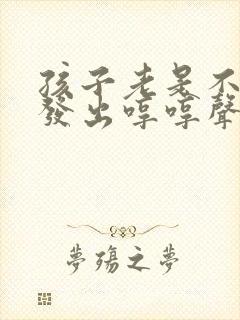 孩子老是不
發出哼哼聲
夢殤之夢